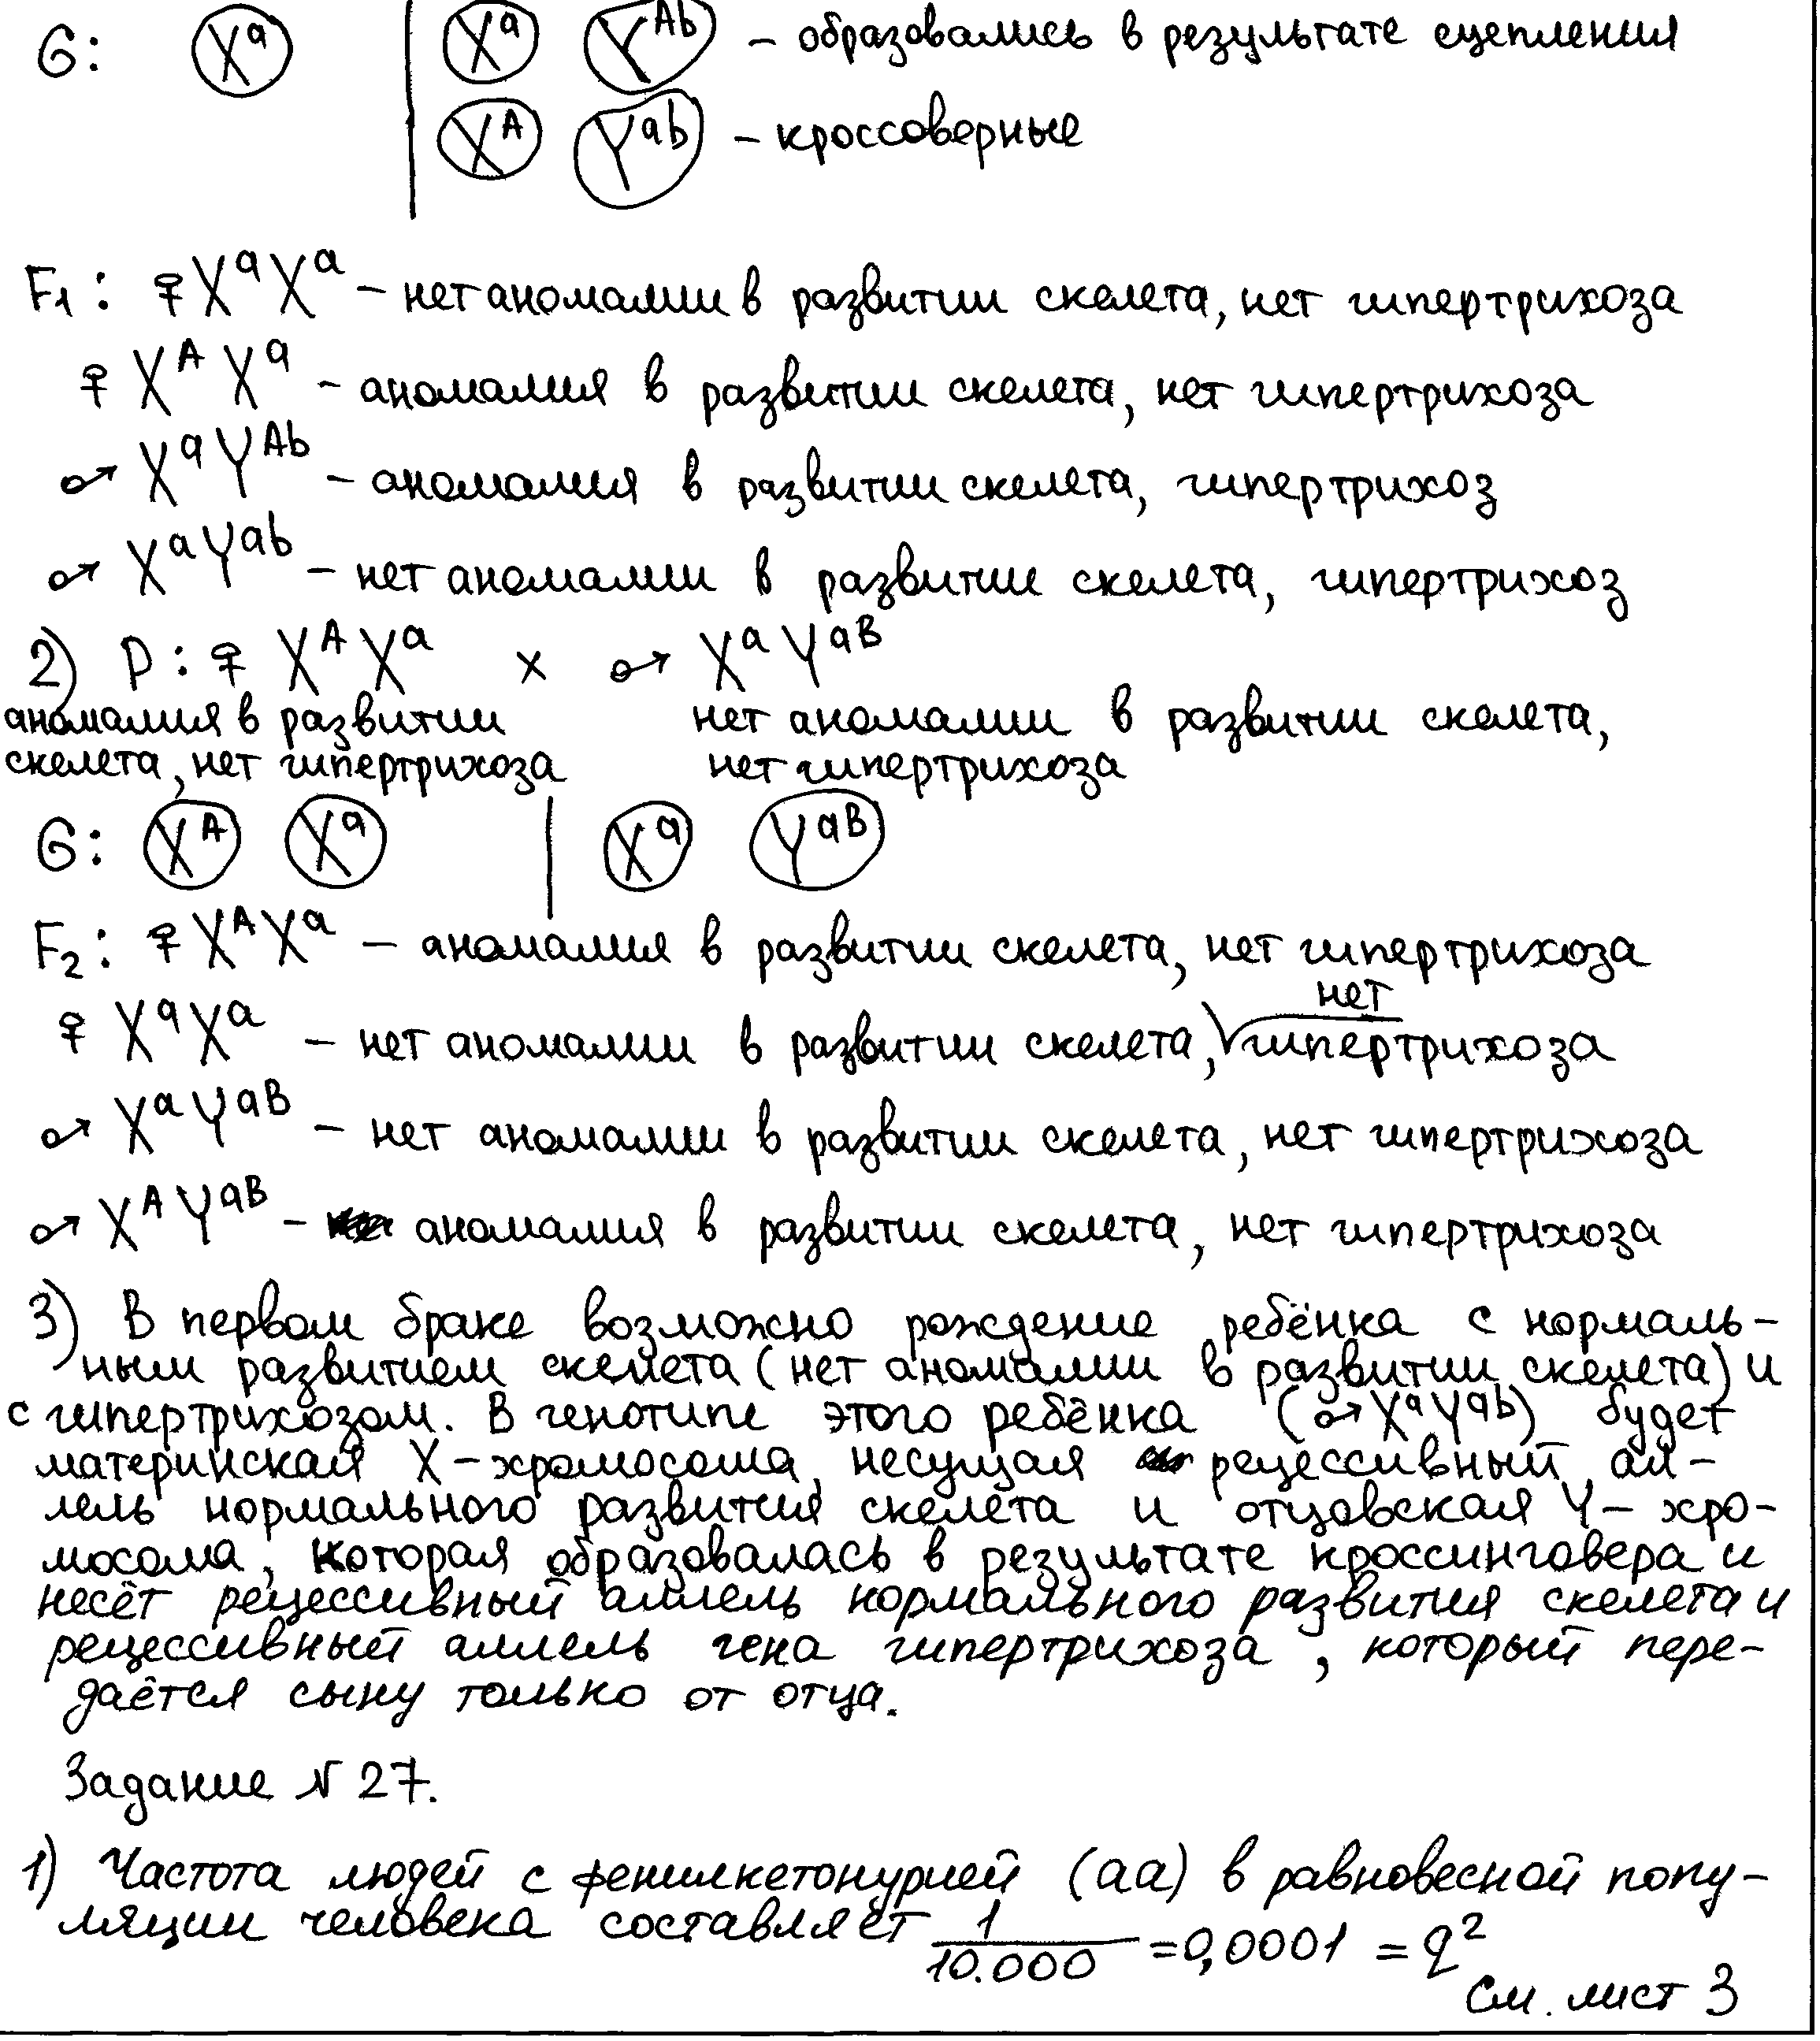 G: Xᵃ | Xᵃ Yᴬᵇ – образовались в результате сцепления
Xᴬ Yᵃᵇ – кроссоверные
F₁: ♀XᵃXᵃ – нет аномалии в развитии скелета, нет гипертрихоза
♀ XᴬXᵃ – аномалия в развитии скелета, нет гипертрихоза
♂ XᵃYᴬᵇ – аномалия в развитии скелета, гипертрихоз
♂ XᵃYᵃᵇ – нет аномалии в развитии скелета, гипертрихоз
2) P: ♀ XᴬXᵃ x ♂ XᵃYᵃᴮ
аномалия в развитии нет аномалии в развитии скелета,
скелета, нет гипертрихоза нет гипертрихоза
G: Xᴬ Xᵃ | Xᵃ Yᵃᴮ
F₂: ♀ XᴬXᵃ – аномалия в развитии скелета, нет гипертрихоза
♀ XᵃXᵃ – нет аномалии в развитии скелета, нет гипертрихоза
♂ XᵃYᵃᴮ – нет аномалии в развитии скелета, нет гипертрихоза
♂ XᴬYᵃᴮ – аномалия в развитии скелета, нет гипертрихоза
3) В первом браке возможно рождение ребёнка с нормаль-
ным развитием скелета (нет аномалии в развитии скелета) и
с гипертрихозом. В генотипе этого ребёнка (♂XᵃYᵃᵇ) будет
материнская X-хромосома, несущая рецессивный ал-
лель нормального развития скелета и отцовская Y-хро-
мосома, которая образовалась в результате кроссинговера и
несёт рецессивный аллель нормального развития скелета и
рецессивный аллель гена гипертрихоза, который пере-
даётся сыну только от отца.
Задание № 27.
1) Частота людей с фенилкетонурией (aa) в равновесной попу-
ляции человека составляет 1/10.000 = 0,0001 = q²
См. лист 3